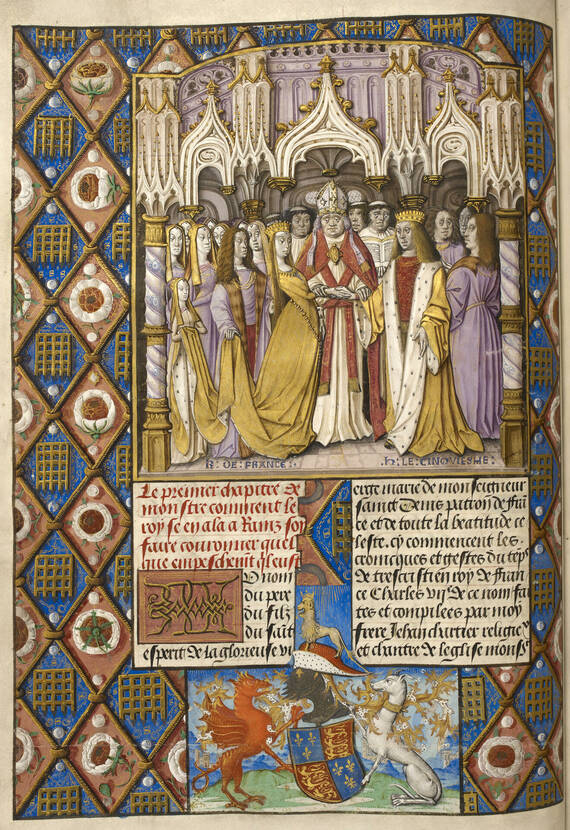 K· DE· FRANCE·
h· LE· CINQVIESME·
Le premier chapitre de
monstre comment le
roy se en ala a Rainz soy
faire couronner quel
que empeschemt qleust
U nom
du pere
du filz
du saīt
esperit de la glorieuse vi
erge marie de monseigneur
saīnct Denis patron de frā
ce et de toute la beatitude ce
leste. cy commencent les
cronicques et gestes du tēps
de trescrestien roy de fran
ce Charles vii de ce nom fai
tes et compilees par moy
frere Jehan chartier religieꝰ
et chantre de leglise monsʳ